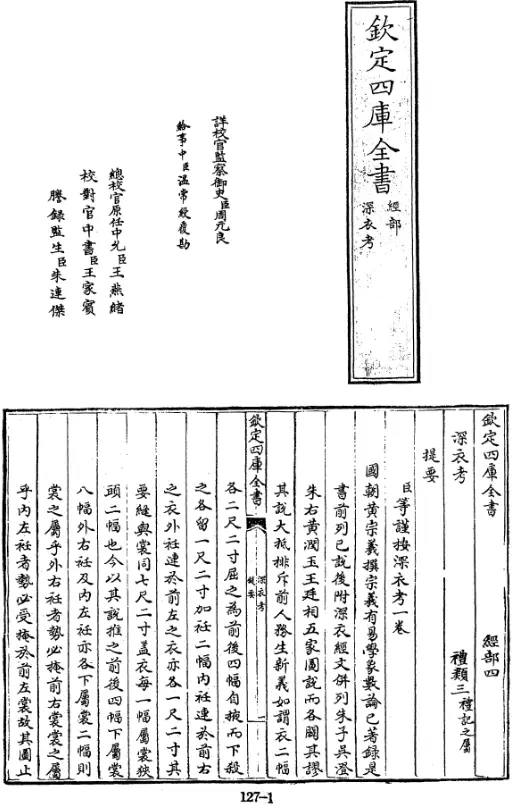 欽定四庫全書
經部
深衣考
詳校官監察御史臣周元良
給事中臣溫常綬覆勘
總校官原任中允臣王燕緒
校對官中書臣王家賓
謄錄監生臣朱連傑
欽定四庫全書
經部四
深衣考
禮類三禮記之屬
提要
臣等謹按深衣考一卷
國朝黃宗羲撰宗羲有易學象數論已著錄是
書前列己說後附深衣經文併列朱子吳澄
朱右黃潤玉王廷相五家圖說而各闢其謬
其說大抵排斥前人務生新義如謂衣二幅
欽定四庫全書
深衣考
提要
一
各二尺二寸屈之為前後四幅自掖而下殺
之各留一尺二寸加衽二幅內衽連於前右
之衣外衽連於前左之衣亦各一尺二寸其
要縫與裳同七尺二寸蓋衣每一幅屬裳狹
頭二幅也今以其說推之前後四幅下屬裳
八幅外右衽及內左衽亦各下屬裳二幅則
裳之屬乎外右衽者勢必掩前右裳裳之屬
乎內左衽者勢必受掩於前左裳故其圖止
127-1